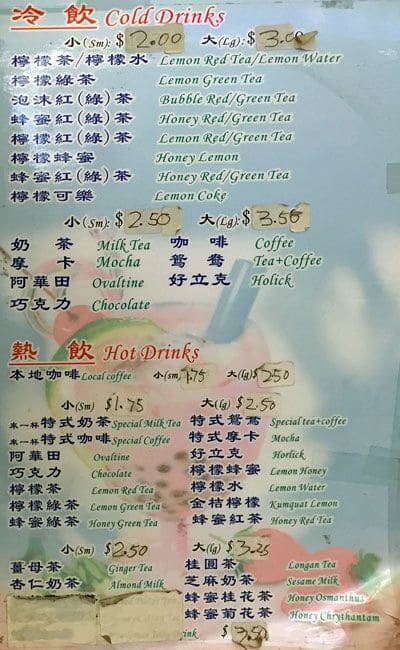 冷 飲 Cold Drinks
小(Sm): $ 2.00 大(Lg): $ 3.00
檸檬茶/檸檬水 Lemon Red Tea/Lemon Water
檸檬綠茶 Lemon Green Tea
泡沫紅(綠)茶 Bubble Red/Green Tea
蜂蜜紅(綠)茶 Honey Red/Green Tea
檸檬紅(綠)茶 Lemon Red/Green Tea
檸檬蜂蜜 Honey Lemon
蜂蜜紅(綠)茶 Honey Red/Green Tea
檸檬可樂 Lemon Coke
小(Sm): $ 2.50 大(Lg): $ 3.50
奶 茶 Milk Tea 咖 啡 Coffee
摩 卡 Mocha 鴛 鴦 Tea+Coffee
阿華田 Ovaltine 好立克 Holick
巧克力 Chocolate
熱 飲 Hot Drinks
本地咖啡 Local coffee 小(sm) $1.75 大(lg) $ 250
小(Sm) $1.75 大(lg) $ 2.50
來一杯特式奶茶 Special Milk Tea 特式鴛鴦 Special tea+coffee
來一杯特式咖啡 Special Coffee 特式摩卡 Mocha
阿華田 Ovaltine 好立克 Horlick
巧克力 Chocolate 檸檬蜂蜜 Lemon Honey
檸檬茶 Lemon Red Tea 檸檬水 Lemon Water
檸檬綠茶 Lemon Green Tea 金桔檸檬 Kumquat Lemon
蜂蜜綠茶 Honey Green Tea 蜂蜜紅茶 Honey Red Tea
小(Sm) $2.50 大(lg) $ 3.25
薑母茶 Ginger Tea 桂圓茶 Longan Tea
杏仁奶茶 Almond Milk 芝麻奶茶 Sesame Milk
蜂蜜桂花茶 Honey Osmanthus
蜂蜜菊花茶 Honey Chrythantam
rink $ 3.50